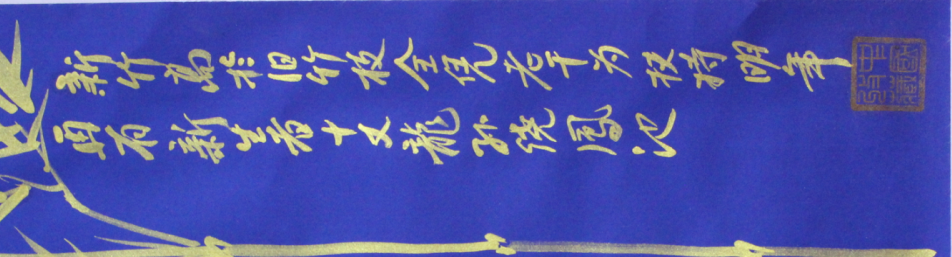 新竹高於旧竹枝全凭老干为扶持明年
再有新生者十丈龍孫繞鳳池